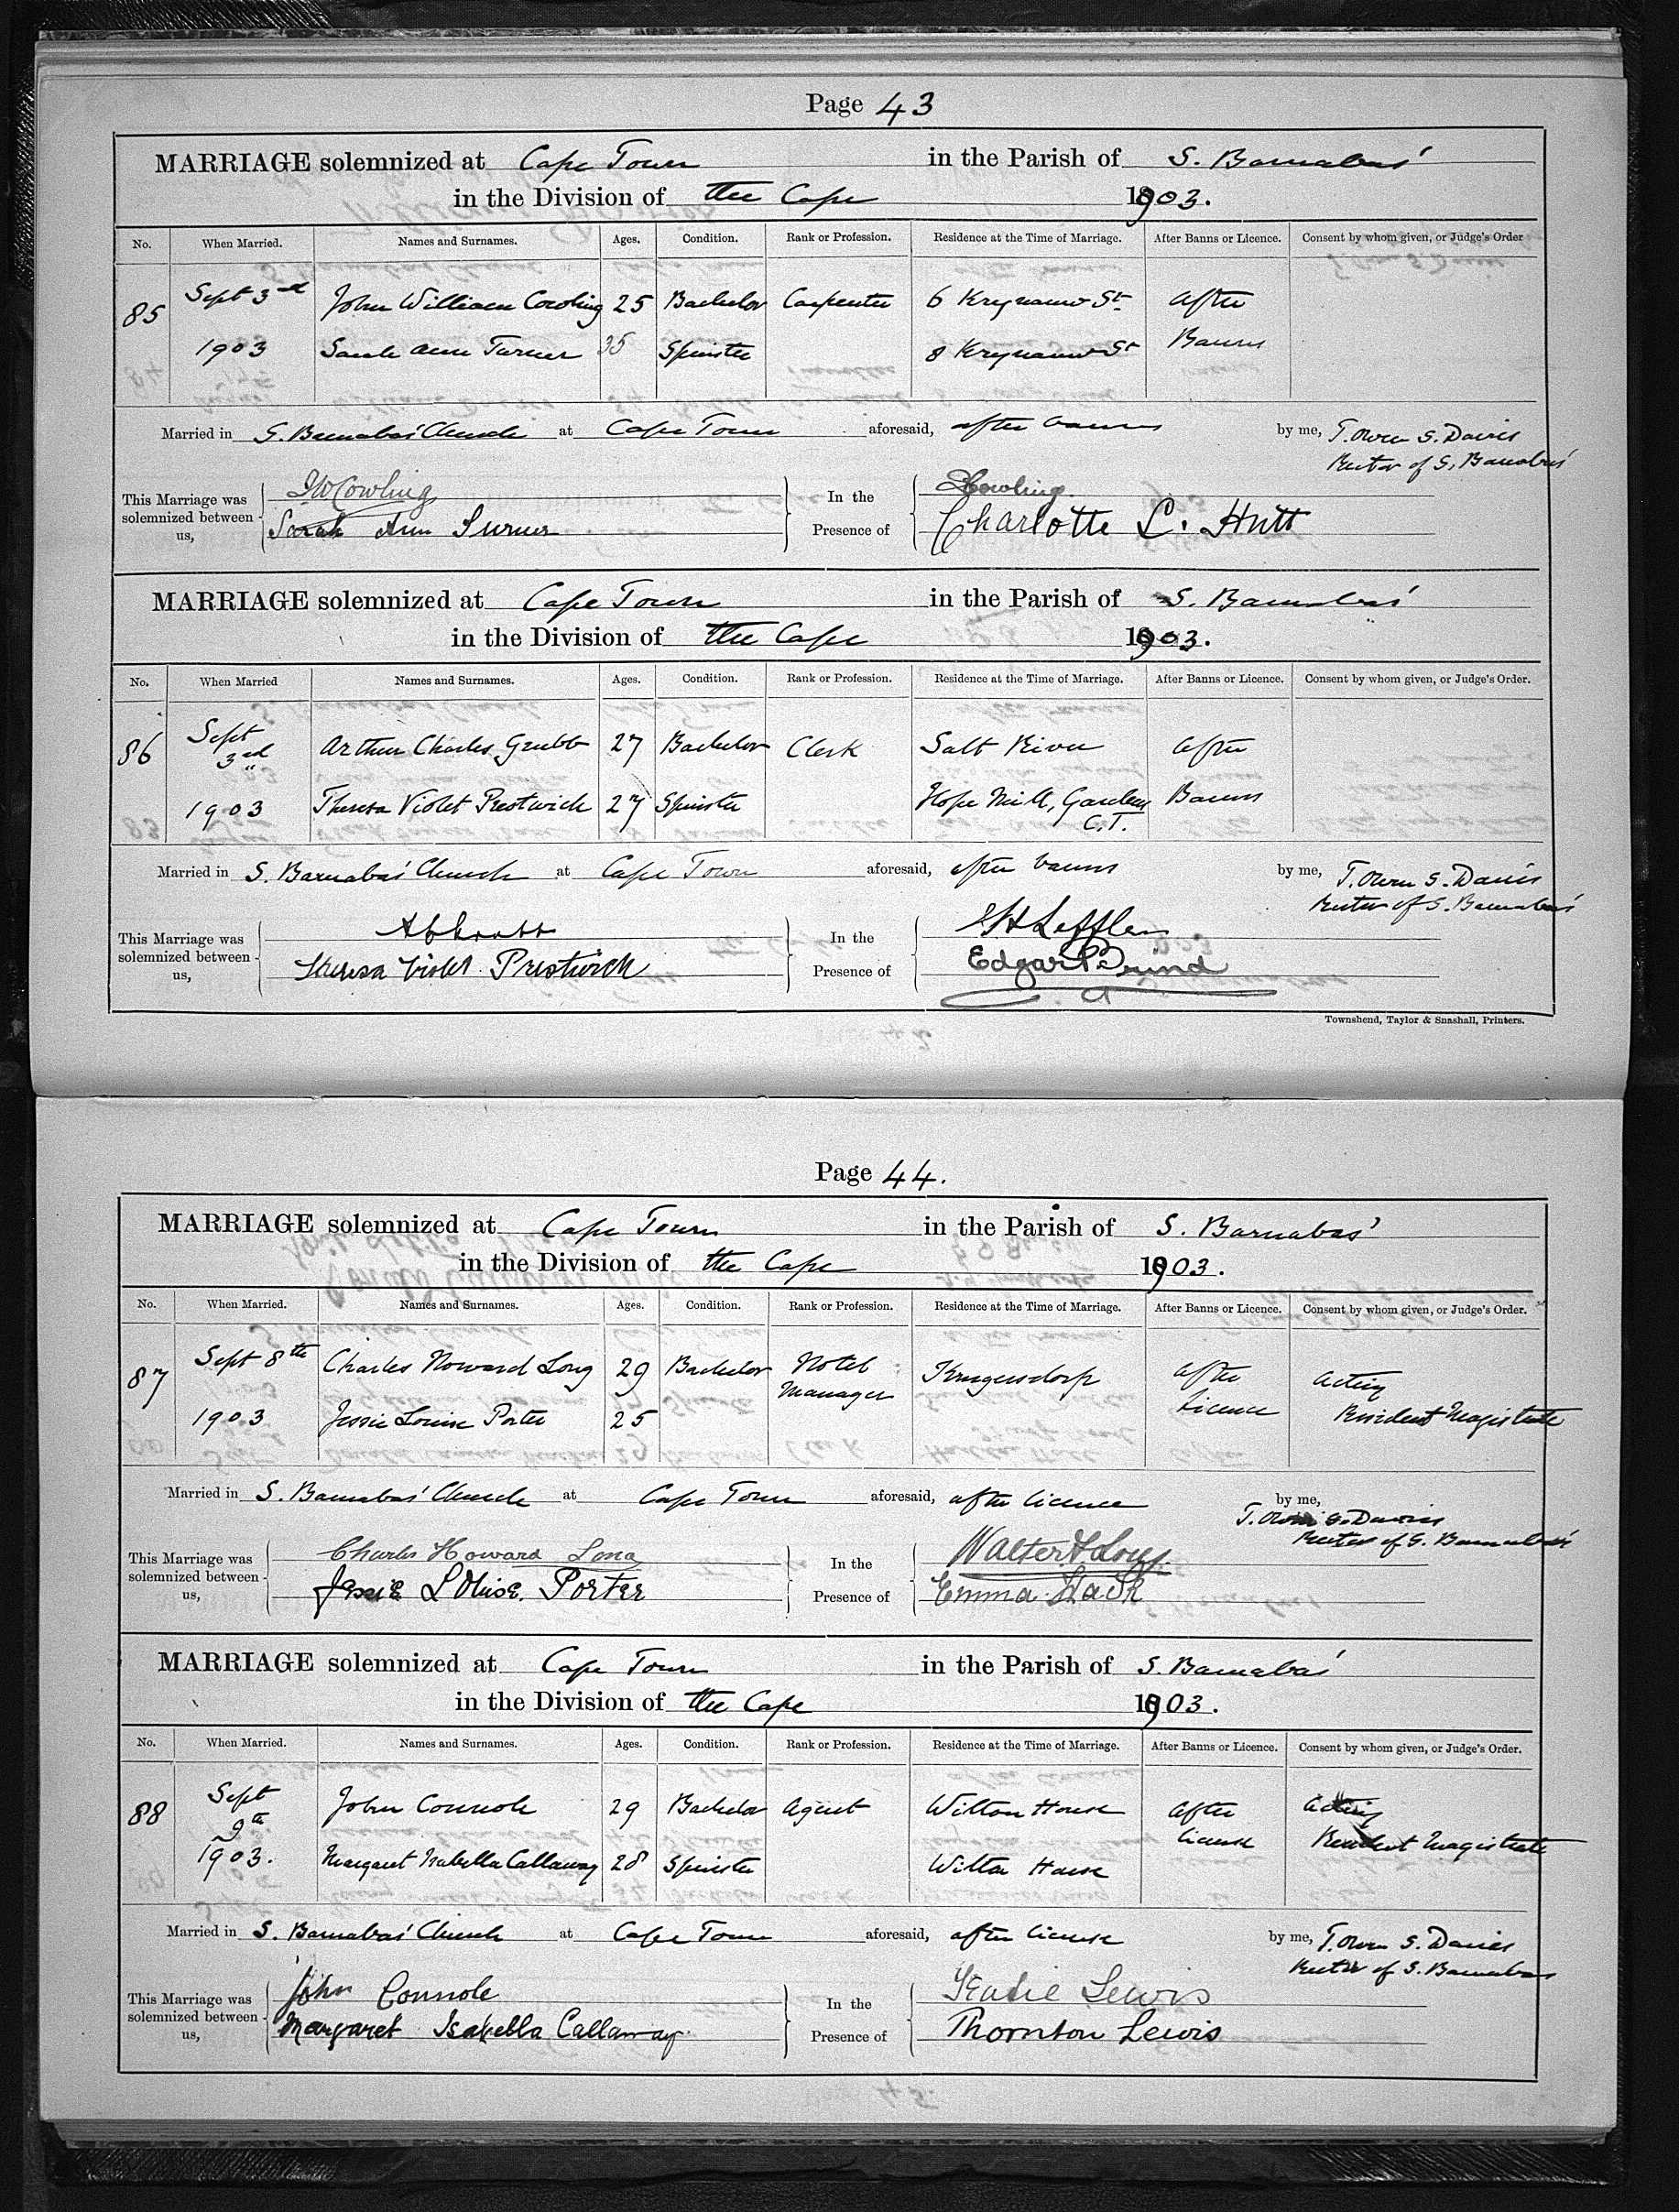 Page 43
MARRIAGE solemnized at Cape Town in the Parish of S. Barnabas'
in the Division of the Cape 1903.
No. When Married. Names and Surnames. Ages. Condition. Rank or Profession. Residence at the Time of Marriage. After Banns or Licence. Consent by whom given, or Judge's Order
85 Sept 3rd John William Cowling 25 Bachelor Carpenter 6 St. After
1903 Sarah Ann Turner 35 Spinster 8 St Banns
Married in S. Barnabas' Church at Cape Town aforesaid, after banns by me, T. Owen S. Davies
Rector of S. Barnabas'
This Marriage was solemnized between us, In the Presence of
JW Cowling Cowling
Sarah Ann Turner Charlotte L. Hutt
MARRIAGE solemnized at Cape Town in the Parish of S. Barnabas'
in the Division of the Cape 1903.
No. When Married Names and Surnames. Ages. Condition. Rank or Profession. Residence at the Time of Marriage. After Banns or Licence. Consent by whom given, or Judge's Order.
86 Sept 3rd Arthur Charles Grubb 27 Bachelor Clerk Salt River After
1903 Theresa Violet Prestwich 27 Spinster Hope Mill, Gardens C.T. Banns
Married in S. Barnabas' Church at Cape Town aforesaid, after banns by me, T. Owen S. Davies
Rector of S. Barnabas'
This Marriage was solemnized between us, In the Presence of
Theresa Violet Prestwich Edgar
Townshend, Taylor & Snashall, Printers.
Page 44.
MARRIAGE solemnized at Cape Town in the Parish of S. Barnabas'
in the Division of the Cape 1903.
No. When Married. Names and Surnames. Ages. Condition. Rank or Profession. Residence at the Time of Marriage. After Banns or Licence. Consent by whom given, or Judge's Order.
87 Sept 8th Charles Howard Long 29 Bachelor Hotel Manager Krugersdorp After Acting
1903 Jessie Louise Porter 25 Licence Resident Magistrate
Married in S. Barnabas' Church at Cape Town aforesaid, after licence by me,
T. Owen S. Davies
Rector of S. Barnabas'
This Marriage was solemnized between us, In the Presence of
Charles Howard Long Walter Long
Jessie Louise. Porter Emma
MARRIAGE solemnized at Cape Town in the Parish of S. Barnabas'
in the Division of the Cape 1903.
No. When Married. Names and Surnames. Ages. Condition. Rank or Profession. Residence at the Time of Marriage. After Banns or Licence. Consent by whom given, or Judge's Order.
88 Sept 9th John Connole 29 Bachelor Agent Wilton House After Acting
1903. Margaret Isabella Callaway 28 Spinster Wilton House license Resident Magistrate
Married in S. Barnabas' Church at Cape Town aforesaid, after license by me, T. Owen S. Davies
Rector of S. Barnabas
This Marriage was solemnized between us, In the Presence of
John Connole Lewis
Margaret Isabella Callaway Thornton Lewis